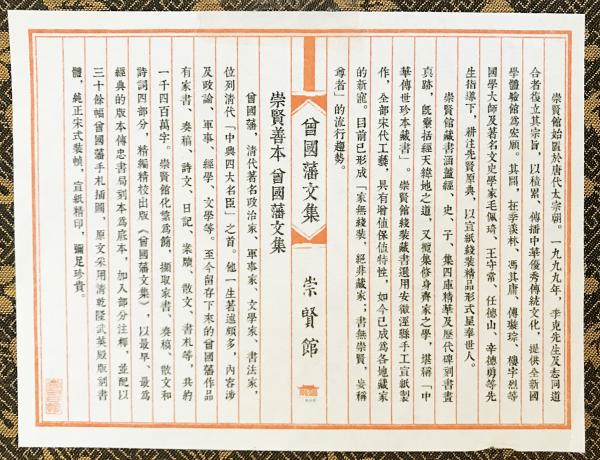 崇賢館始置於唐代太宗朝。一九九九年，李克先生及志同道
合者復立其宗旨，以積累、傳播中華優秀傳統文化，提供全新國
學體驗館爲宏願。其間，在季羨林、馮其庸、傅璇琮、樓宇烈等
國學大師及著名文史學家毛佩琦、王守常、任德山、辛德勇等先
生指導下，耕注先賢原典，以宣紙綫裝精品形式呈奉世人。
崇賢館藏書涵蓋經、史、子、集四庫精華及歷代碑刻書畫
真跡，既囊括經天緯地之道，又攬集修身齊家之學，堪稱「中
華傳世珍本藏書」。崇賢館綫裝藏書選用安徽涇縣手工宣紙製
作，全部宋代工藝，具有增值保值特性，如今已成爲各地藏家
的新寵。目前已形成「家無綫裝，絕非藏家；書無崇賢，妄稱
尊者」的流行趨勢。
曾國藩文集
崇賢館
崇賢善本 曾國藩文集
曾國藩，清代著名政治家、軍事家、文學家、書法家，
位列清代「中興四大名臣」之首。他一生著述頗多，內容涉
及政論、軍事、經學、文學等。至今留存下來的曾國藩作品
有家書、奏稿、詩文、日記、案牘、散文、書札等，共約
一千四百萬字。崇賢館化繁爲簡，擷取家書、奏稿、散文和
詩詞四部分，精編精校出版《曾國藩文集》，以最早、最爲
經典的版本傳忠書局刻本爲底本，加入部分注釋，並配以
三十餘幅曾國藩手札插圖，原文采用清乾隆武英殿版刻書
體，純正宋式裝幀，宣紙精印，彌足珍貴。